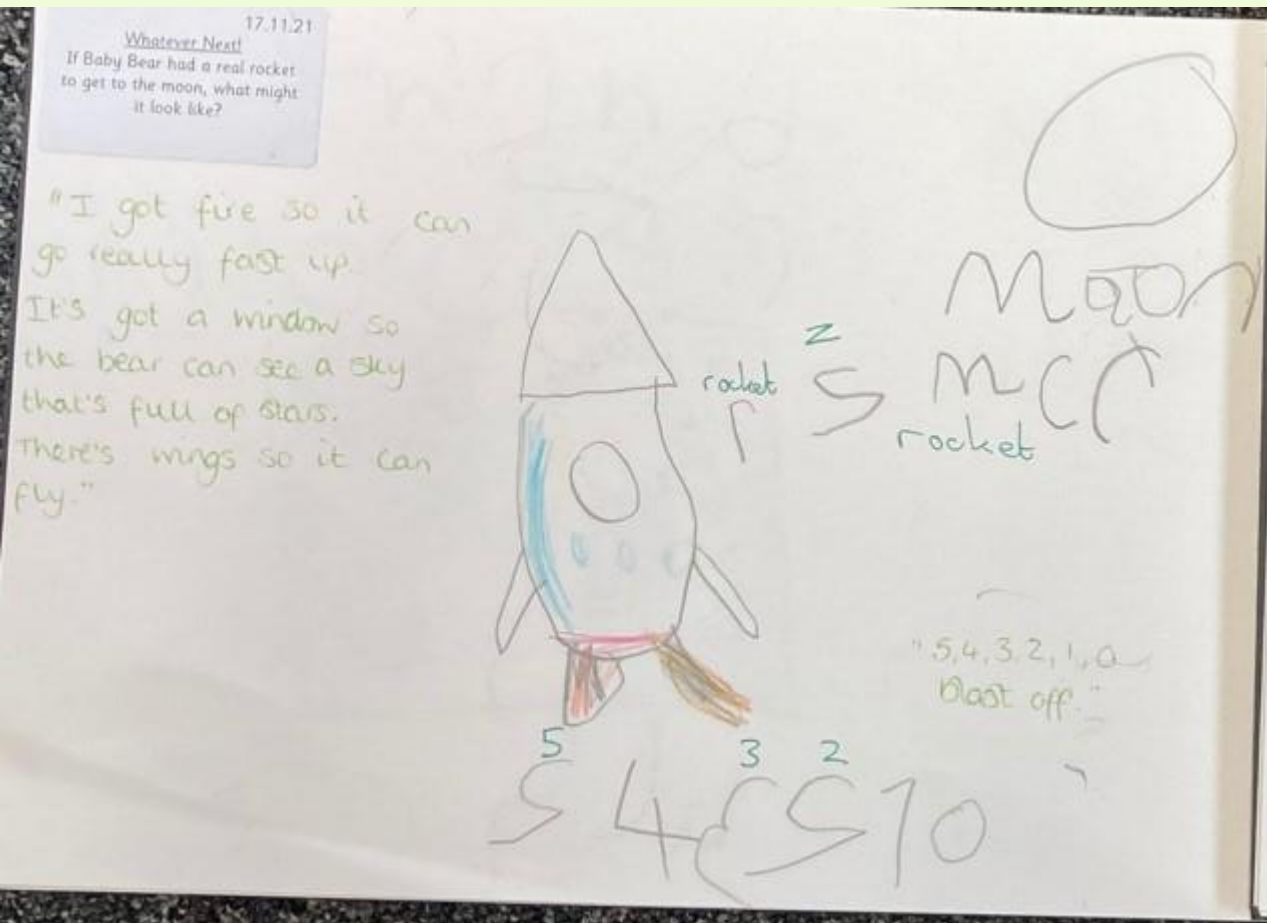 17.11.21
Whatever Next!
If Baby Bear had a real rocket
to get to the moon, what might
it look like?
"I got fire so it can
go really fast up.
It's got a window so
the bear can see a sky
that's full of stars.
There's wings so it can
fly."
Moon
z
rocket
r S m c r
rocket
"5, 4, 3, 2, 1, 0
Blast off."
5 3 2
5 4 3 2 1 0